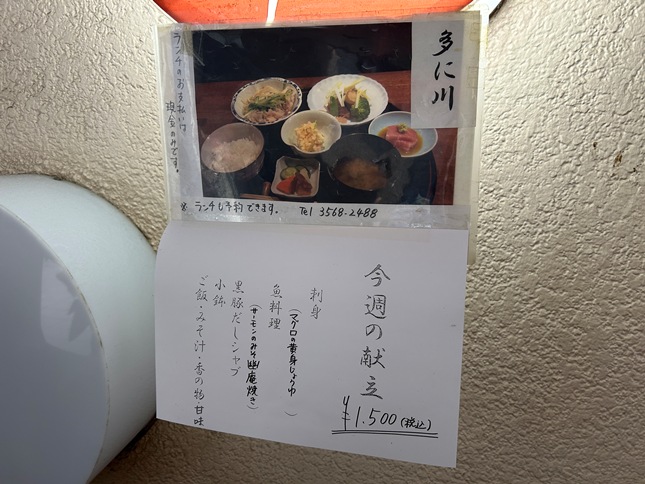 多に川
ランチのお支払いは
現金のみです。
※ ランチも予約できます。 Tel 3568-2488
今週の献立
¥1,500(税込)
刺身
(マグロの黄身しょうゆ)
魚料理
(サーモンのみそ幽庵焼き)
黒豚だしシャブ
小鉢
ご飯・みそ汁・香の物・甘味